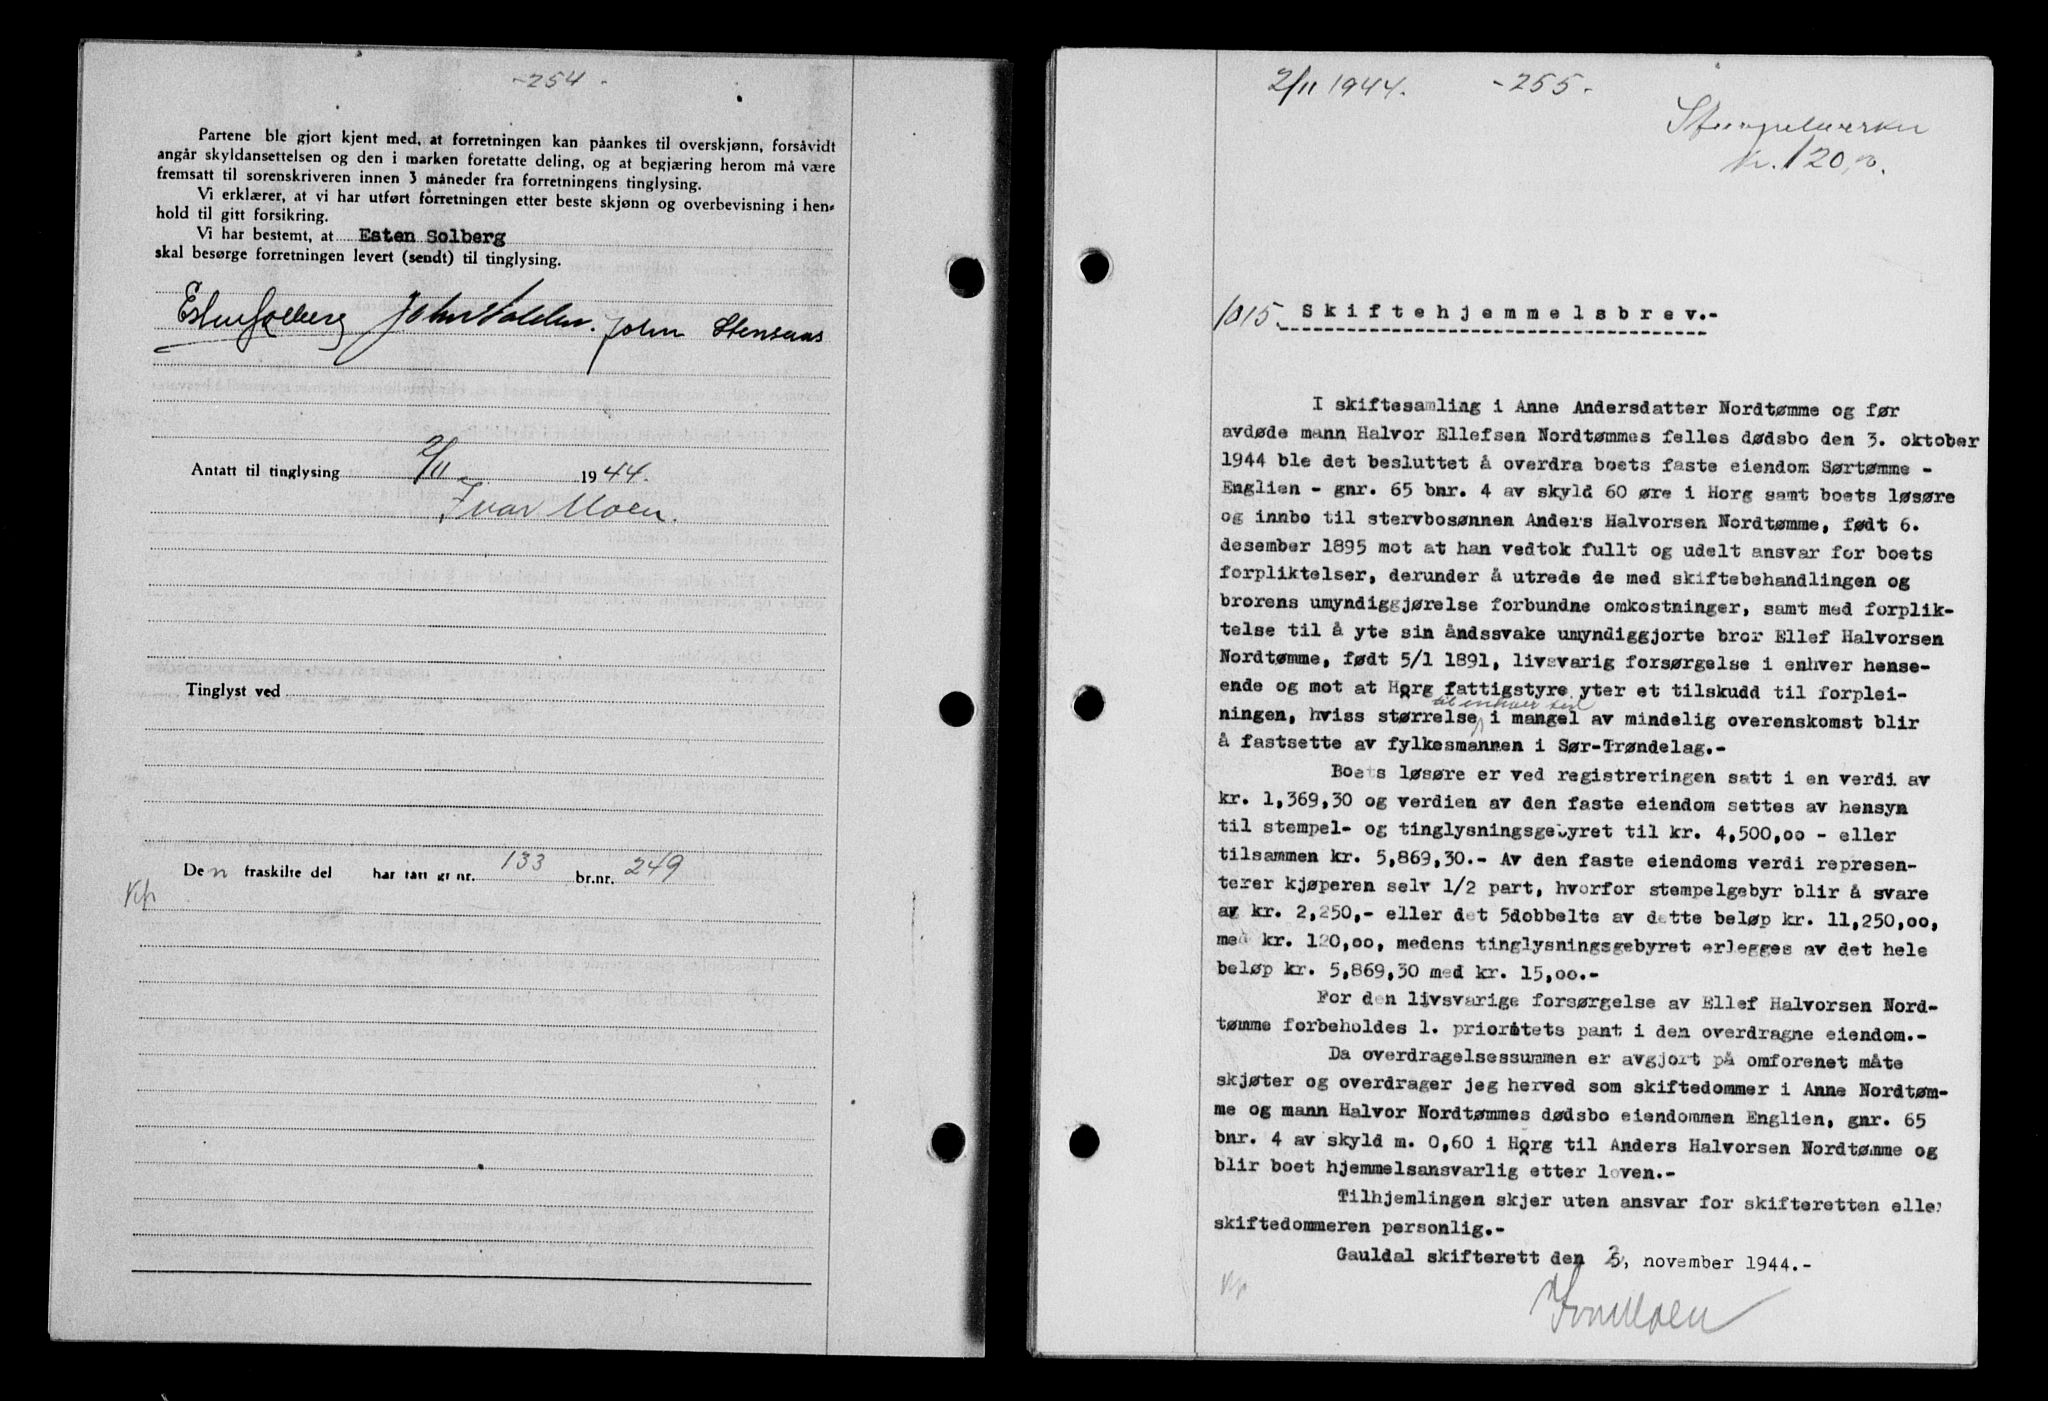 -254-
Partene ble gjort kjent med, at forretningen kan påankes til overskjønn, forsåvidt
angår skyldansettelsen og den i marken foretatte deling, og at begjæring herom må være
fremsatt til sorenskriveren innen 3 måneder fra forretningens tinglysing.
Vi erklærer, at vi har utført forretningen etter beste skjønn og overbevisning i hen-
hold til gitt forsikring.
Vi har bestemt, at Esten Solberg
skal besørge forretningen levert (sendt) til tinglysing.
Esten Solberg John John Stensaas
Antatt til tinglysing 2/11 1944.
Ivar Moen.
Tinglyst ved
Den fraskilte del har fått gr.nr. 133 br.nr. 249
Kp
2/11 1944. -255-
Stempelmerker
kr. 120,00.
1015 Skiftehjemmelsbrev.-
I skiftesamling i Anne Andersdatter Nordtømme og før
avdøde mann Halvor Ellefsen Nordtømmes felles dødsbo den 3. oktober
1944 ble det besluttet å overdra boets faste eiendom Sørtømme -
Englien - gnr. 65 bnr. 4 av skyld 60 øre i Horg samt boets løsøre
og innbo til stervbosønnen Anders Halvorsen Nordtømme, født 6.
desember 1895 mot at han vedtok fullt og udelt ansvar for boets
forpliktelser, derunder å utrede de med skiftebehandlingen og
brorens umyndiggjørelse forbundne omkostninger, samt med forplik-
telse til å yte sin åndssvake umyndiggjorte bror Ellef Halvorsen
Nordtømme, født 5/1 1891, livsvarig forsørgelse i enhver hense-
ende og mot at Horg fattigstyre yter et tilskudd til forplei-
til enhver tid
ningen, hviss størrelse i mangel av mindelig overenskomst blir
å fastsette av fylkesmannen i Sør-Trøndelag.-
Boets løsøre er ved registreringen satt i en verdi av
kr. 1,369,30 og verdien av den faste eiendom settes av hensyn
til stempel- og tinglysningsgebyret til kr. 4,500,oo - eller
tilsammen kr. 5,869,30.- Av den faste eiendoms verdi represen-
terer kjøperen selv 1/2 part, hvorfor stempelgebyr blir å svare
av kr. 2,250,- eller det 5dobbelte av dette beløp kr. 11,250,oo,
med kr. 120,oo, medens tinglysningsgebyret erlegges av det hele
beløp kr. 5,869,30 med kr. 15,oo.-
For den livsvarige forsørgelse av Ellef Halvorsen Nord-
tømme forbeholdes 1. prioritets pant i den overdragne eiendom.-
Da overdragelsessummen er avgjort på omforenet måte
skjøter og overdrager jeg herved som skiftedommer i Anne Nordtøm-
me og mann Halvor Nordtømmes dødsbo eiendommen Englien, gnr. 65
bnr. 4 av skyld m. 0,60 i Horg til Anders Halvorsen Nordtømme og
blir boet hjemmelsansvarlig etter loven.-
Tilhjemlingen skjer uten ansvar for skifteretten eller
skiftedommeren personlig.-
Gauldal skifterett den 2, november 1944.-
Kp
Ivar Moen